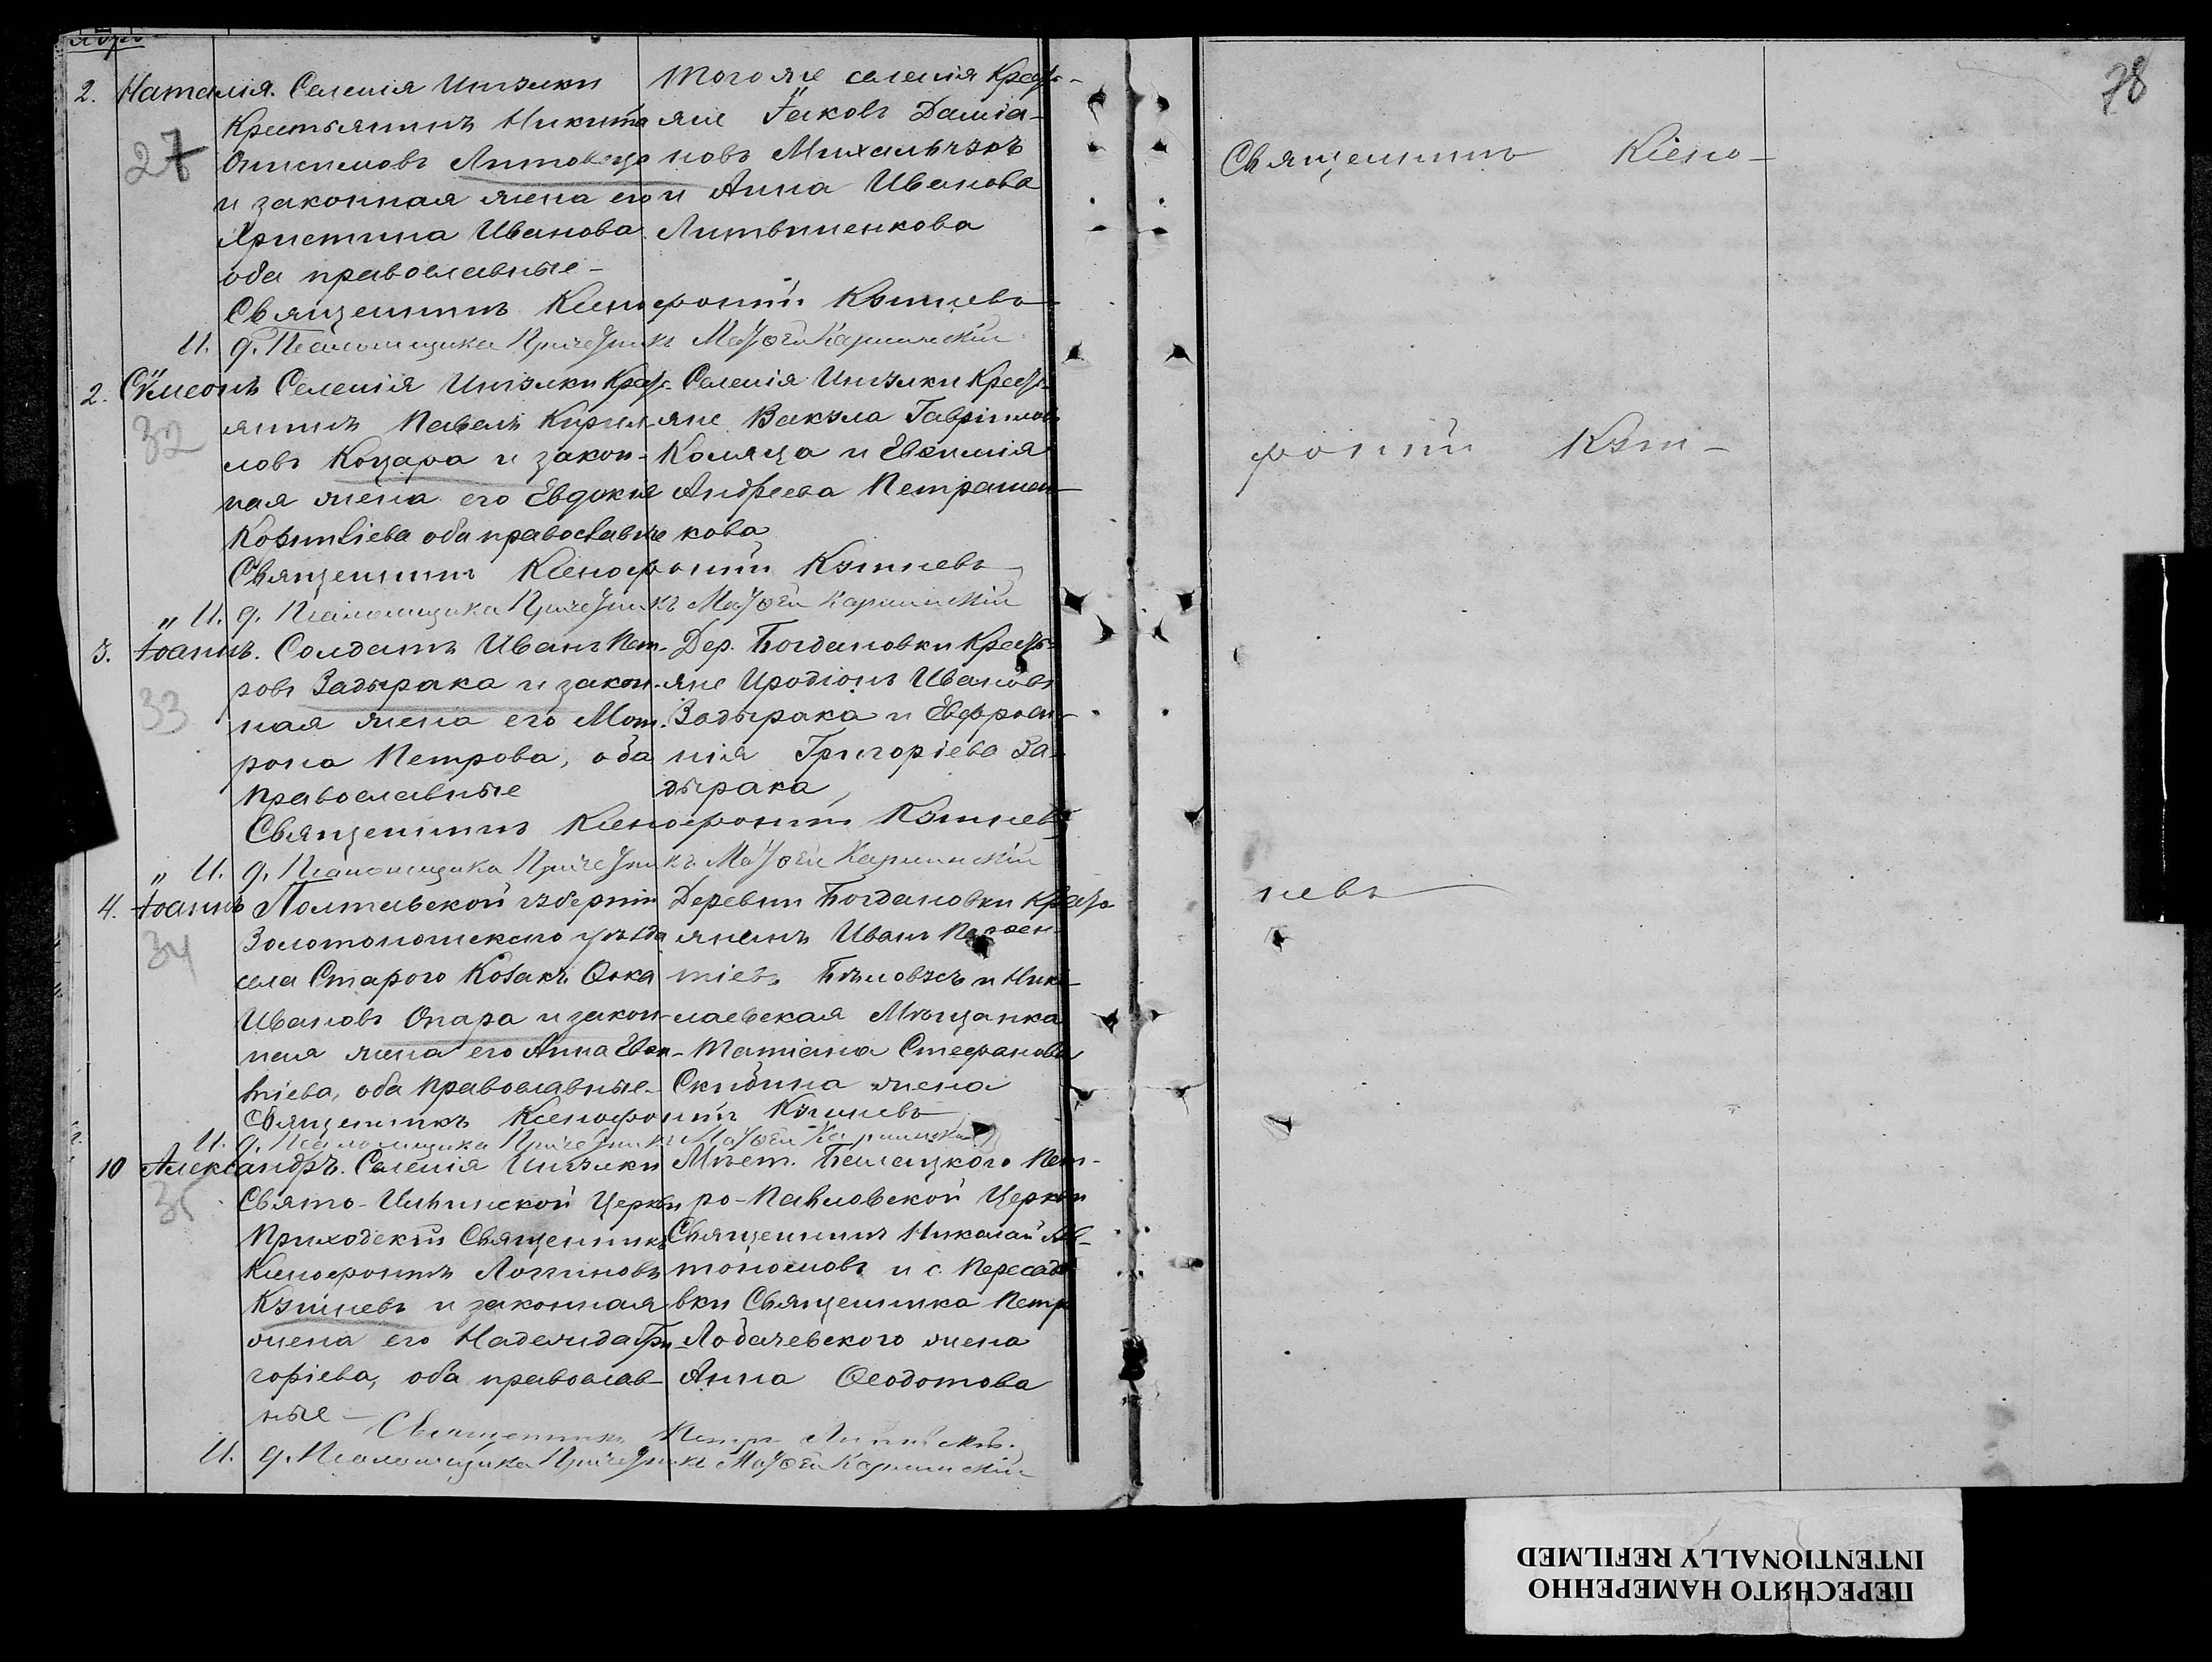 78
2. Наталія. Селенія Ингулки
Крестьянинъ Никита
27 Онисимовъ
и законная жена его
Христина Иванова
оба православные
того же селенія Кресть-
яне Іаковъ Даміа-
новъ Михальчукъ
и Анна Иванова
Литвиненкова
Священникъ Ксенофонтъ Кутневъ
И. д. Псаломщика Причетникъ Матѳей
2. Сѵмеонъ Селенія Ингулки Кресть-
32 янинъ Павелъ Кирил-
ловъ Коцара и закон-
ная жена его Евдокія
оба православные
Селенія Ингулки Кресть-
яне Вакула Гавріиловъ
Коляда и Евѳимія
Андреева Петрашен-
кова
Священникъ Ксенофонтъ Кутневъ
„ И. д. Псаломщика Причетникъ Матѳей
3. Іоаннъ. Солдатъ Иванъ Пет-
33 ровъ Задырака и закон-
ная жена его Мат-
рона Петрова, оба
православные
Дер. Богдановки Кресть-
яне Иродіонъ Ивановъ
Задырака и Евфроси-
нія Григоріева За-
дырака
Священникъ Ксенофонтъ Кутневъ
„ И. д. Псаломщика Причетникъ Матѳей
4. Іоаннъ Полтавской губерніи
34 Золотоношскаго уѣзда
села Старого Козакъ Ѳока
Ивановъ Опара и закон-
ная жена его Анна Евѳи-
міева, оба православные
Деревни Богдановки Кресть-
янинъ Иванъ Парѳен-
тіевъ Бѣловусъ и Нико-
лаевская Мѣщанка
Татіана Стефанова
Скибина жена
Священникъ Ксенофонтъ Кутневъ
И. д. Псаломщика Причетникъ Матѳей
10 Александръ. Селенія Ингулки
35 Свято-Ильинской Церкви
Приходскій Священникъ
Ксенофонтъ Логгиновъ
Кутневъ и законная
жена его Надежда Гри-
горіева, оба православ-
ные
Мѣст. Пет-
ро-Павловской Церкви
Священникъ Николай Ав-
тономовъ и с. Пересадо-
вки Священника Петра
Лобачевского жена
Анна Ѳеодотова
Священникъ Петръ
И. д. Псаломщика Причетникъ Матѳей
Священникъ Ксено-
фонтъ Кут-
невъ
ПЕРЕСНЯТО НАМЕРЕННО
INTENTIONALLY REFILMED